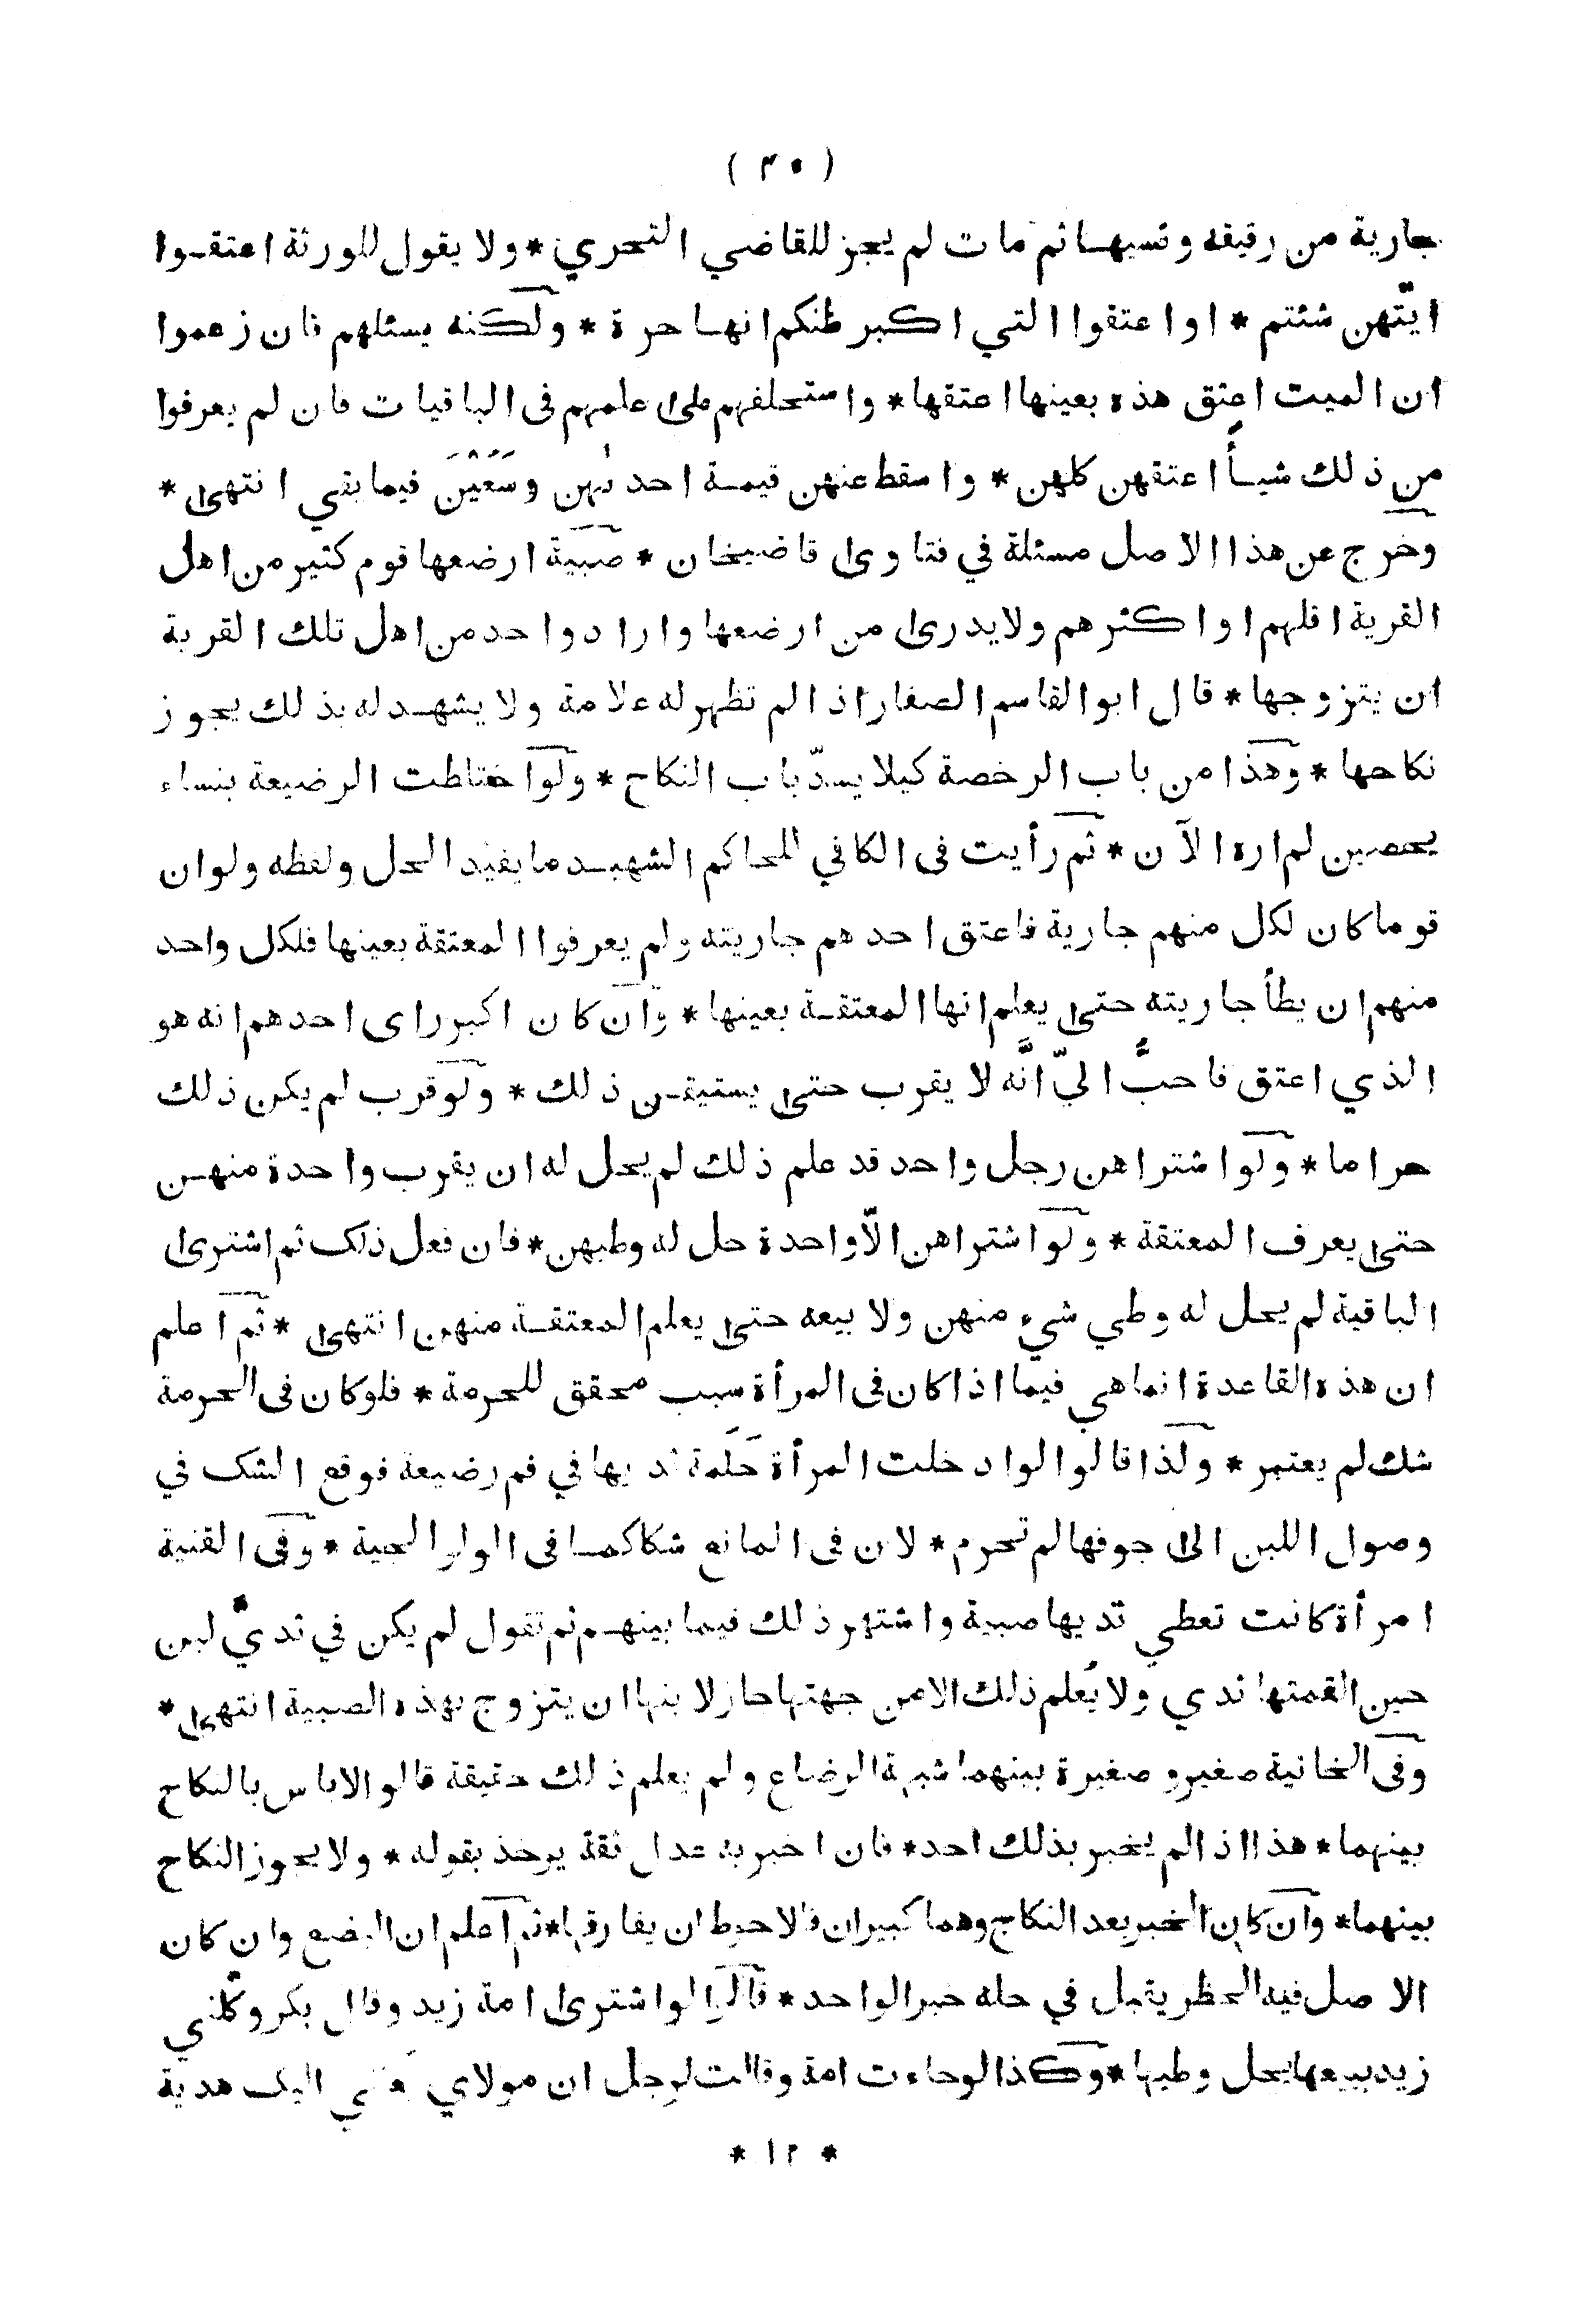 ( ٣٠ )
جارية من رقيقه ونسيها ثم مات لم يجز للقاضي التحري * ولا يقول للورثة اعتقوا
ايّتهن شئتم * او اعتقوا التي اكبر ظنكم انها حرة * ولكنه يسئلهم فان زعموا
ان الميت اعتق هذه بعينها اعتقها * واستحلفهم على علمهم فى الباقيات فان لم يعرفوا
من ذلك شيأً اعتقهن كلهن * واسقط عنهن قيمة احدٰىهن وسَعَيْنَ فيما بقي انتهى *
وخرج عن هذا الاصل مسئلة في فتاوى قاضيخان * صبية ارضعها قوم كثير من اهل
القرية اقلهم او اكثرهم ولا يدرى من ارضعها واراد واحد من اهل تلك القرية
ان يتزوجها * قال ابو القاسم الصفار اذا لم تظهر له علامة ولا يشهد له بذلك يجوز
نكاحها * وهذا من باب الرخصة كيلا يسدّ باب النكاح * ولو اختلطت الرضيعة بنساء
يحصين لم اره الآن * ثم رأيت فى الكافي للحاكم الشهيد ما يفيد الحل ولفظه ولو ان
قوما كان لكل منهم جارية فاعتق احدهم جاريته ولم يعرفوا المعتقة بعينها فلكل واحد
منهم ان يطأ جاريته حتى يعلم انها المعتقة بعينها * وان كان اكبر راى احدهم انه هو
الذي اعتق فاحبُّ اليّ انَّه لا يقرب حتى يستيقن ذلك * ولو قرب لم يكن ذلك
حراما * ولو اشتراهن رجل واحد قد علم ذلك لم يحل له ان يقرب واحدة منهن
حتى يعرف المعتقة * ولو اشتراهن الّا واحدة حل له وطيهن * فان فعل ذلك ثم اشترى
الباقية لم يحل له وطي شيء منهن ولا بيعه حتى يعلم المعتقة منهن انتهى * ثم اعلم
ان هذه القاعدة انما هي فيما اذا كان فى المرأة سبب محقق للحرمة * فلو كان فى الحرمة
شك لم يعتبر * ولذا قالوا لو ادخلت المرأة حَلَمة ثديها في فم رضيعة فوقع الشك في
وصول اللبن الى جوفها لم تحرم * لان فى المانع شكا كما فى الولوالجية * وفى القنية
امرأة كانت تعطي ثديها صبية واشتهر ذلك فيما بينهم ثم تقول لم يكن في ثديّ لبن
حين القمتها ثدي ولا يُعلم ذلك الا من جهتها جاز لابنها ان يتزوج بهذه الصبية انتهى *
وفى الخانية صغير وصغيرة بينهما شبهة الرضاع ولم يعلم ذلك حقيقة قالوا لا باس بالنكاح
بينهما * هذا اذا لم يخبر بذلك احد * فان اخبر به عدل ثقة يوخذ بقوله * ولا يجوز النكاح
بينهما * وان كان الخبر بعد النكاح وهما كبيران فالاحوط ان يفارقها * ثم اعلم ان البضع وان كان
الاصل فيه الحظر يقبل في حله خبر الواحد * قالوا لو اشترى امة زيد وقال بكر وكّلني
زيد ببيعها يحل وطيها * وكذا لو جاءت امة وقالت لرجل ان مولاي اليك هدية
* ١٢ *